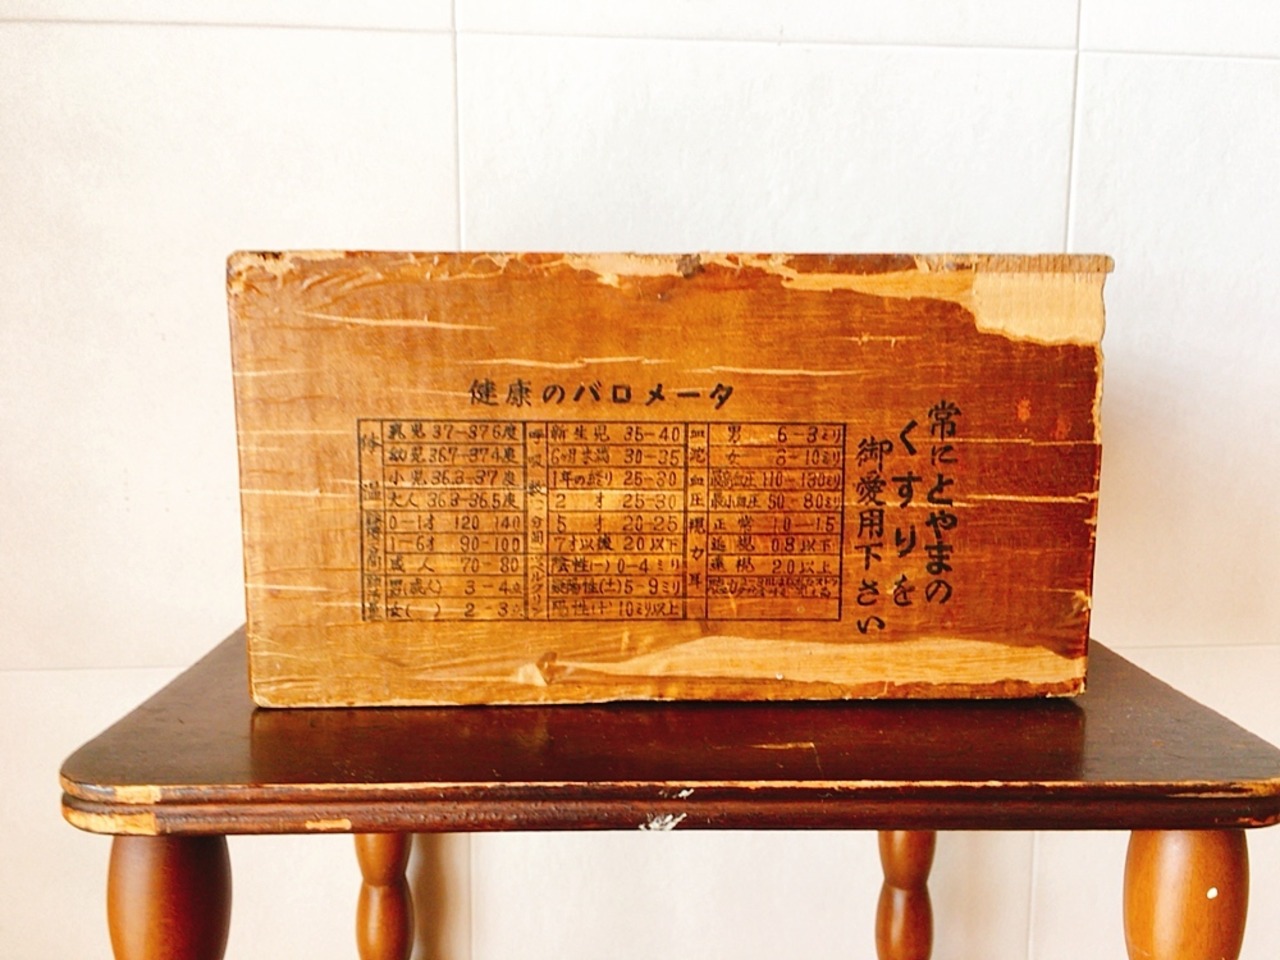 健康のバロメータ
体温
乳児 37-37.6度
幼児 36.7-37.4度
小児 36.3-37度
大人 36.3-36.5度
0-1才 120 140
1-6才 90-100
成人 70-80
男(成人) 3-4
女( ) 2-3
呼吸数(分間)
新生児 35-40
30-35
1年の終り 25-30
2才 25-30
5才 20-25
7才以後 20以下
陰性(-) 0-4ミリ
疑陽性(±) 5-9ミリ
陽性(+) 10ミリ以上
血沈
男 6-3ミリ
女 8-10ミリ
血圧
最高血圧 110-130ミリ
最小血圧 50-80ミリ
視力
正常 1.0-1.5
近視 0.8以下
遠視 2.0以上
耳
聴力
常にとやまの
くすりを
御愛用下さい